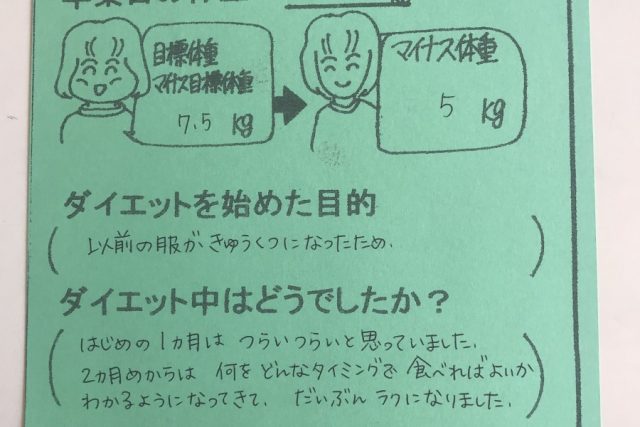 目標体重
マイナス目標体重
7.5 kg
マイナス体重
5 kg
ダイエットを始めた目的
以前の服がきゅうくつになったため.
ダイエット中はどうでしたか？
はじめの1カ月は つらいつらいと思っていました.
2カ月めからは 何をどんなタイミングで 食べればよいか
わかるようになってきて、 だいぶん ラクになりました.